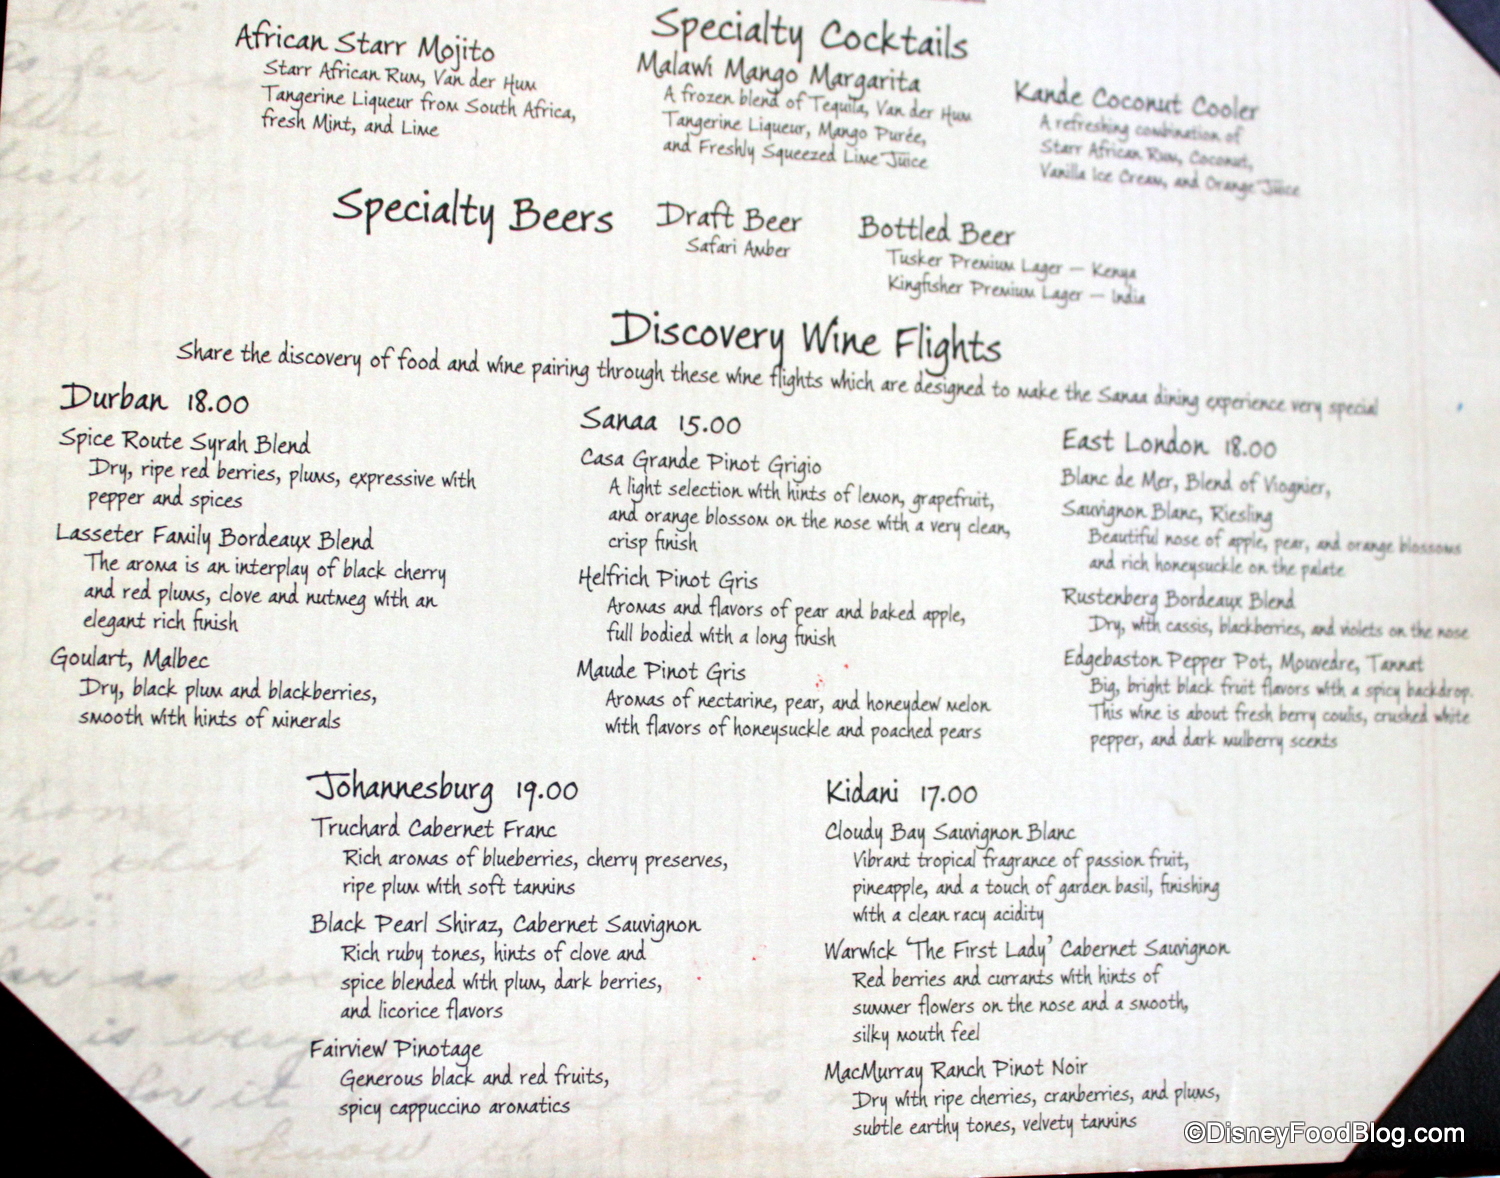 Specialty Cocktails
African Starr Mojito
Starr African Rum, Van der Hum
Tangerine Liqueur from South Africa,
fresh Mint, and Lime
Malawi Mango Margarita
A frozen blend of Tequila, Van der Hum
Tangerine Liqueur, Mango Purée,
and Freshly Squeezed Lime Juice
Kande Coconut Cooler
A refreshing combination of
Starr African Rum, Coconut,
Vanilla Ice Cream, and Orange Juice
Specialty Beers
Draft Beer
Safari Amber
Bottled Beer
Tusker Premium Lager — Kenya
Kingfisher Premium Lager — India
Discovery Wine Flights
Share the discovery of food and wine pairing through these wine flights which are designed to make the Sanaa dining experience very special
Durban 18.00
Spice Route Syrah Blend
Dry, ripe red berries, plums, expressive with
pepper and spices
Lasseter Family Bordeaux Blend
The aroma is an interplay of black cherry
and red plums, clove and nutmeg with an
elegant rich finish
Goulart, Malbec
Dry, black plum and blackberries,
smooth with hints of minerals
Sanaa 15.00
Casa Grande Pinot Grigio
A light selection with hints of lemon, grapefruit,
and orange blossom on the nose with a very clean,
crisp finish
Helfrich Pinot Gris
Aromas and flavors of pear and baked apple,
full bodied with a long finish
Maude Pinot Gris
Aromas of nectarine, pear, and honeydew melon
with flavors of honeysuckle and poached pears
East London 18.00
Blanc de Mer, Blend of Viognier,
Sauvignon Blanc, Riesling
Beautiful nose of apple, pear, and orange blossoms
and rich honeysuckle on the palate
Rustenberg Bordeaux Blend
Dry, with cassis, blackberries, and violets on the nose
Edgebaston Pepper Pot, Mouvedre, Tannat
Big, bright black fruit flavors with a spicy backdrop.
This wine is about fresh berry coulis, crushed white
pepper, and dark mulberry scents
Johannesburg 19.00
Truchard Cabernet Franc
Rich aromas of blueberries, cherry preserves,
ripe plum with soft tannins
Black Pearl Shiraz, Cabernet Sauvignon
Rich ruby tones, hints of clove and
spice blended with plum, dark berries,
and licorice flavors
Fairview Pinotage
Generous black and red fruits,
spicy cappuccino aromatics
Kidani 17.00
Cloudy Bay Sauvignon Blanc
Vibrant tropical fragrance of passion fruit,
pineapple, and a touch of garden basil, finishing
with a clean racy acidity
Warwick 'The First Lady' Cabernet Sauvignon
Red berries and currants with hints of
summer flowers on the nose and a smooth,
silky mouth feel
MacMurray Ranch Pinot Noir
Dry with ripe cherries, cranberries, and plums,
subtle earthy tones, velvety tannins
©DisneyFoodBlog.com